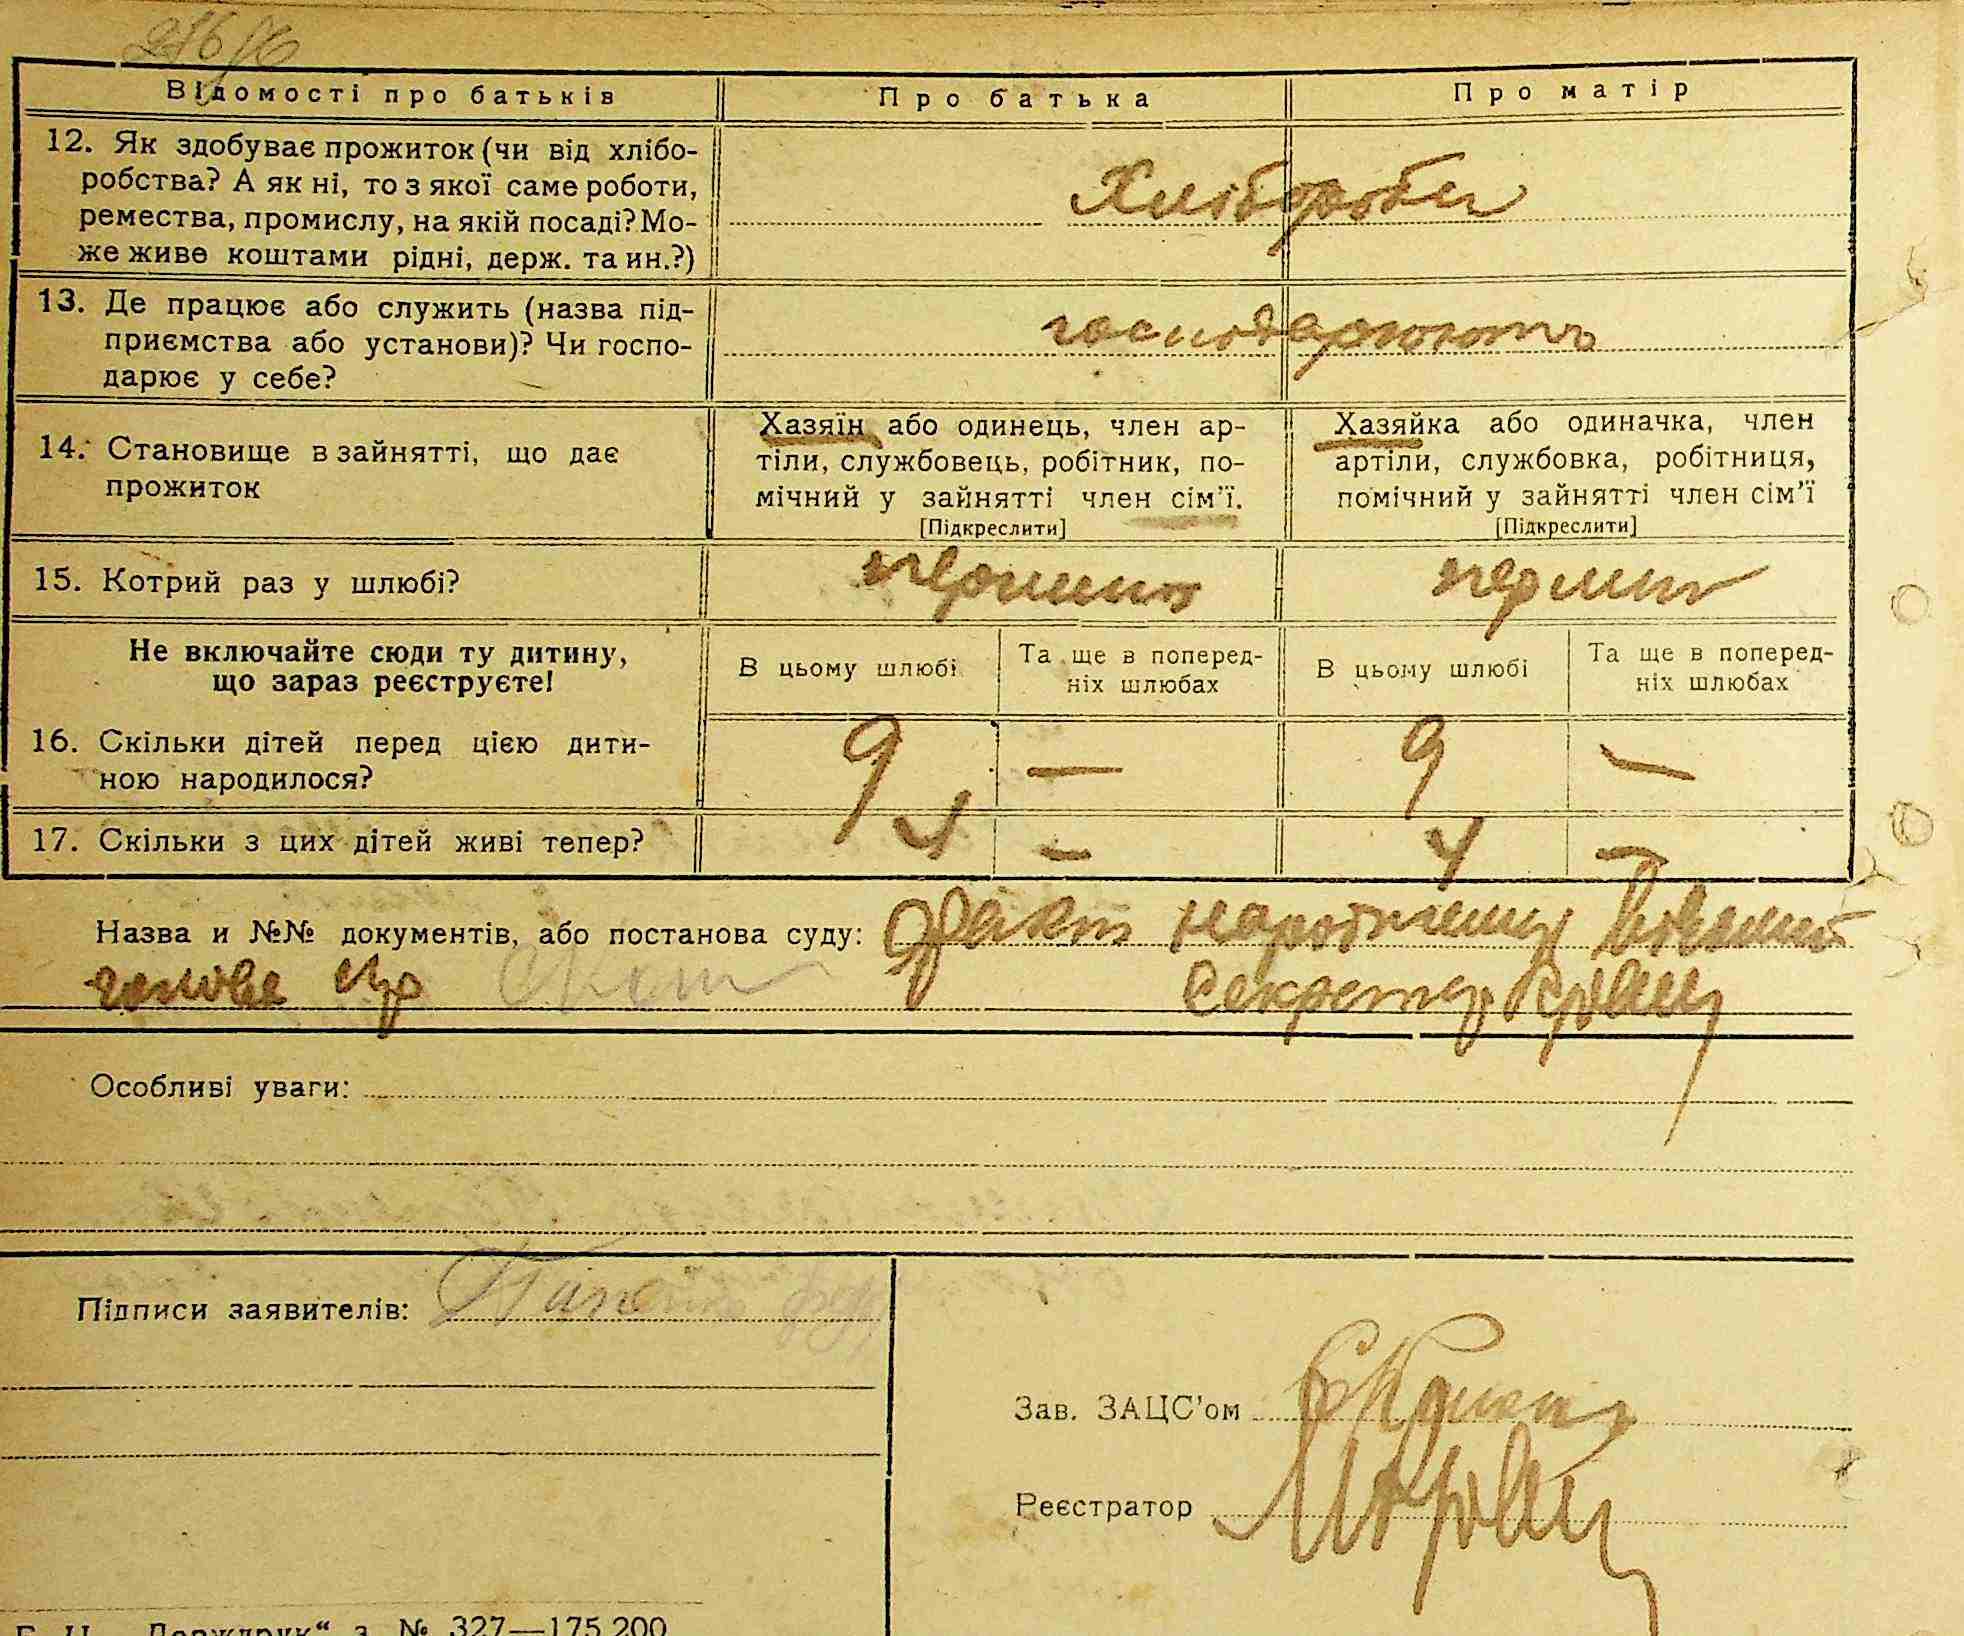 Відомості про батьків
Про батька
Про матір
12. Як здобуває прожиток (чи від хлібо-
робства? А як ні, то з якої саме роботи,
ремества, промислу, на якій посаді? Мо-
же живе коштами рідні, держ. та ин.?)
Хлібороби
13. Де працює або служить (назва під-
приємства або установи)? Чи госпо-
дарює у себе?
господарюють
14. Становище в зайнятті, що дає
прожиток
Хазяїн або одинець, член ар-
тіли, службовець, робітник, по-
мічний у зайнятті член сім'ї.
[Підкреслити]
Хазяйка або одиначка, член
артіли, службовка, робітниця,
помічний у зайнятті член сім'ї
[Підкреслити]
15. Котрий раз у шлюбі?
Не включайте сюди ту дитину,
що зараз реєструєте!
В цьому шлюбі
Та ще в поперед-
ніх шлюбах
В цьому шлюбі
Та ще в поперед-
ніх шлюбах
16. Скільки дітей перед цією дити-
ною народилося?
9 — 9 —
17. Скільки з цих дітей живі тепер?
4 — 4 —
Назва и №№ документів, або постанова суду: Факт
голова Секретар
Особливі уваги:
Підписи заявителів:
Зав. ЗАЦС'ом
Реєстратор
№ 327—175.200